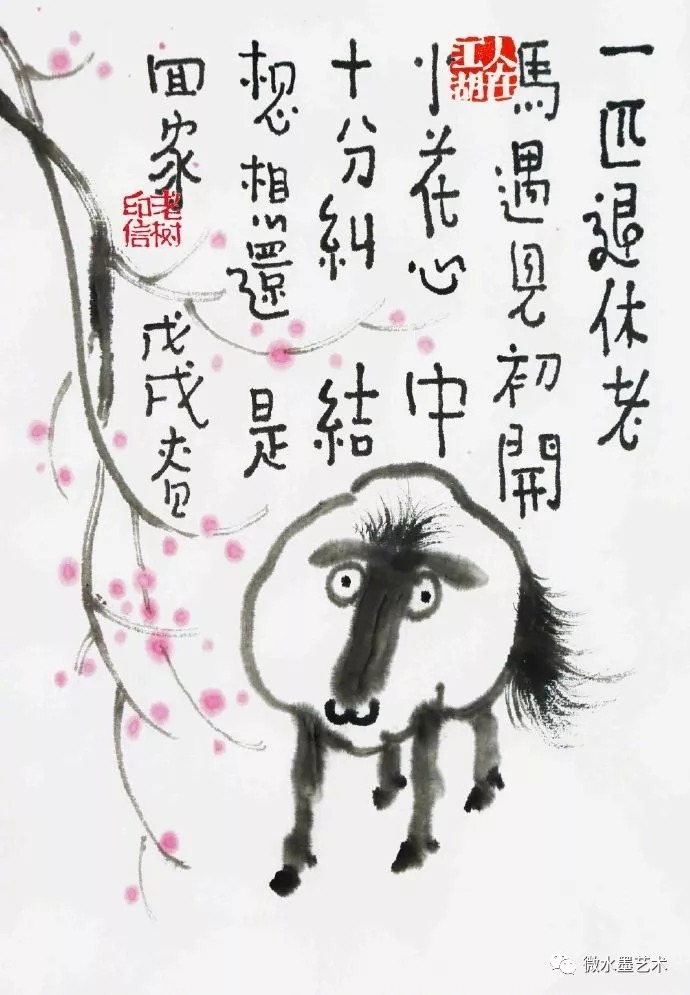 一匹退休老
馬遇見初開
小花心中
十分糾結
想想還是
回家
戊戌春
人在江湖
老树印信
微水墨艺术